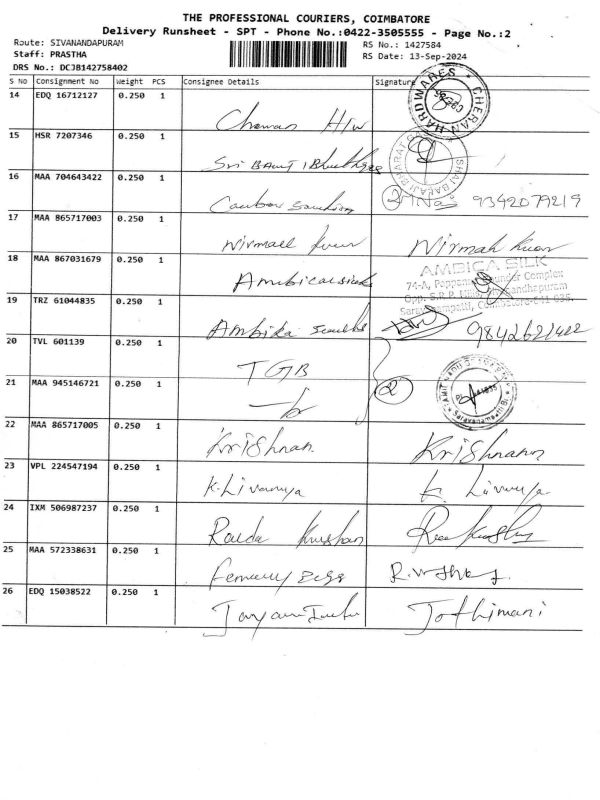 THE PROFESSIONAL COURIERS, COIMBATORE
Delivery Runsheet - SPT - Phone No.:0422-3505555 - Page No.:2
Route: SIVANANDAPURAM
RS No.: 1427584
Staff: PRASTHA
RS Date: 13-Sep-2024
DRS No.: DCJB142758402
S No Consignment No Weight PCS Consignee Details Signature
14 EDQ 16712127 0.250 1
HARDWARES CHERAN
15 HSR 7207346 0.250 1 Sri
16 MAA 704643422 0.250 1 2 9342079219
17 MAA 865717003 0.250 1 Nirmall Kumar Nirmah Kumar
18 MAA 867031679 0.250 1 Ambica silks
AMBICA SILK
74-A,
Complex
Opp. S.R.P. Mills,
Coimbatore-641 035.
19 TRZ 61044835 0.250 1 Ambika 9842621422
20 TVL 601139 0.250 1 TGB
21 MAA 945146721 0.250 1 2
22 MAA 865717005 0.250 1 Krishnan. Krishnann
23 VPL 224547194 0.250 1 K. Livanya K. Livanya
24 IXM 506987237 0.250 1
25 MAA 572338631 0.250 1
26 EDQ 15038522 0.250 1 Jothimani